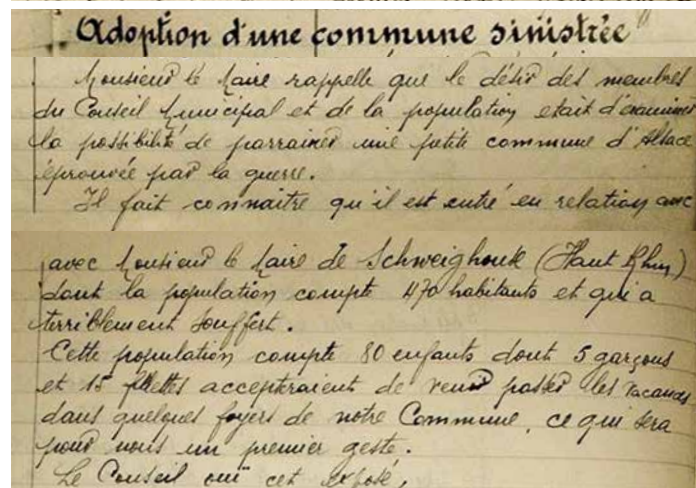 Adoption d'une commune sinistrée
Monsieur le Maire rappelle que le désir des membres
du Conseil Municipal et de la population etait d'examiner
la possibilité de parrainer une petite commune d'Alsace
éprouvée par la guerre.
Il fait connaitre qu'il est entré en relation avec
avec Monsieur le Maire de Schweighouse (Haut Rhin)
dont la population compte 470 habitants et qui a
terriblement souffert.
Cette population compte 80 enfants dont 5 garçons
et 15 fillettes accepteraient de venir passer les vacances
dans quelques foyers de notre Commune, ce qui sera
pour nous un premier geste.
Le Conseil ouï cet exposé,